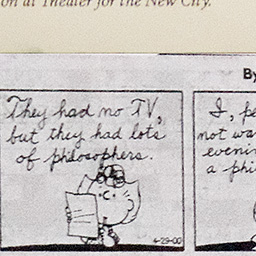 on at Theater for the New City.
By
They had no TV,
but they had lots
of philosophers.
4-29-00
I, pe
not wa
evenin
a phi